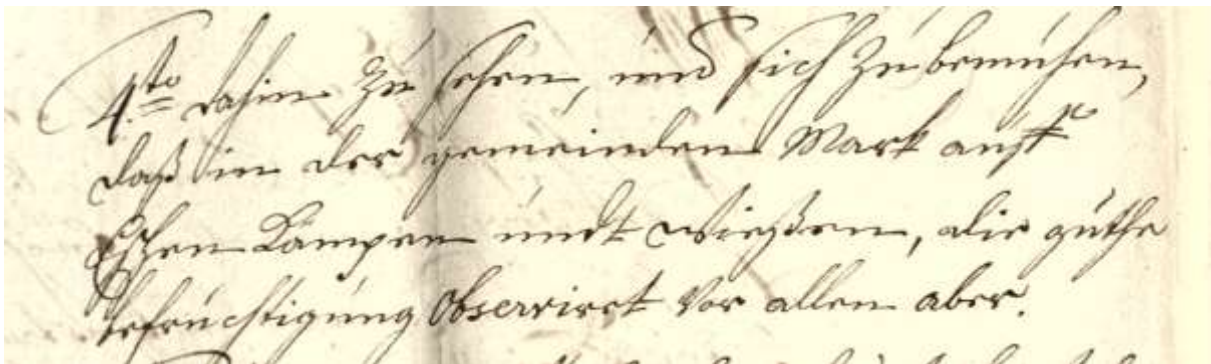 4.to dahin zu sehen, und sich zu bemühen,
daß in der gemeinden Mark auf
Eschen Kämpen undt Wießen, die guthe
befruchtigung observiret vor allen aber.